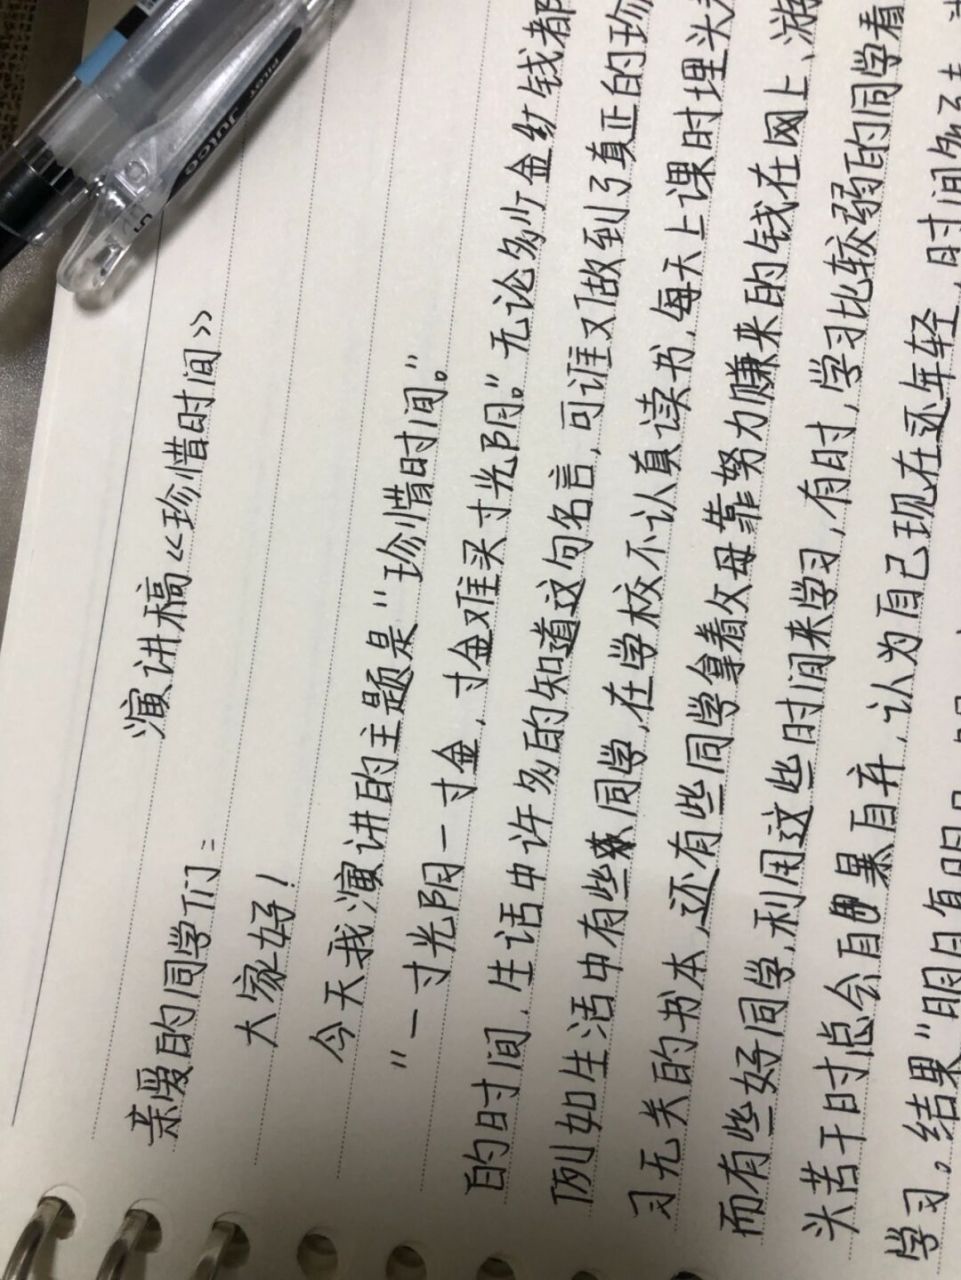 演讲稿《珍惜时间》
亲爱的同学们：
大家好！
今天我演讲的主题是“珍惜时间。”
“一寸光阴一寸金，寸金难买寸光阴。”无论多少金钱都
的时间，生活中许多的知道这句名言，可谁又做到了真正的珍
例如生活中有些同学，在学校不认真读书，每天上课时埋头
习无关的书本，还有些同学拿着父母靠努力赚来的钱在网上、游
而有些好同学，利用这些时间来学习，有时，学习比较弱的同学看
头苦干时总会自暴自弃，认为自己现在还年轻，时间多
学习。结果“明日复明日
PILOT
Juice